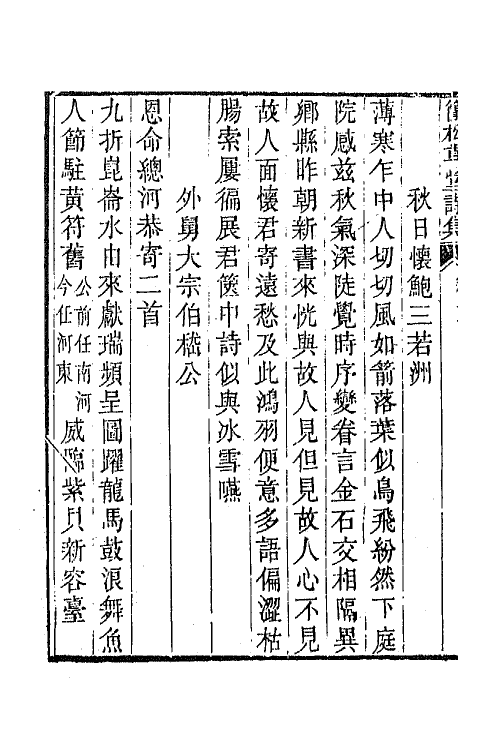 秋日懷鮑三若洲
薄寒乍中人切切風如箭落葉似鳥飛紛然下庭
院感兹秋氣深陡覺時序變眷言金石交相隔異
鄉縣昨朝新書來恍與故人見但見故人心不見
故人面懷君寄遠愁及此鴻羽便意多語偏澀枯
腸索屢徧展君篋中詩似與冰雪嚥
外舅大宗伯嵇公
恩命總河恭寄二首
九折崑崙水由來獻瑞頻呈圖躍龍馬鼓浪舞魚
人節駐黃符舊公前任南河今任河東威臨紫貝新容臺